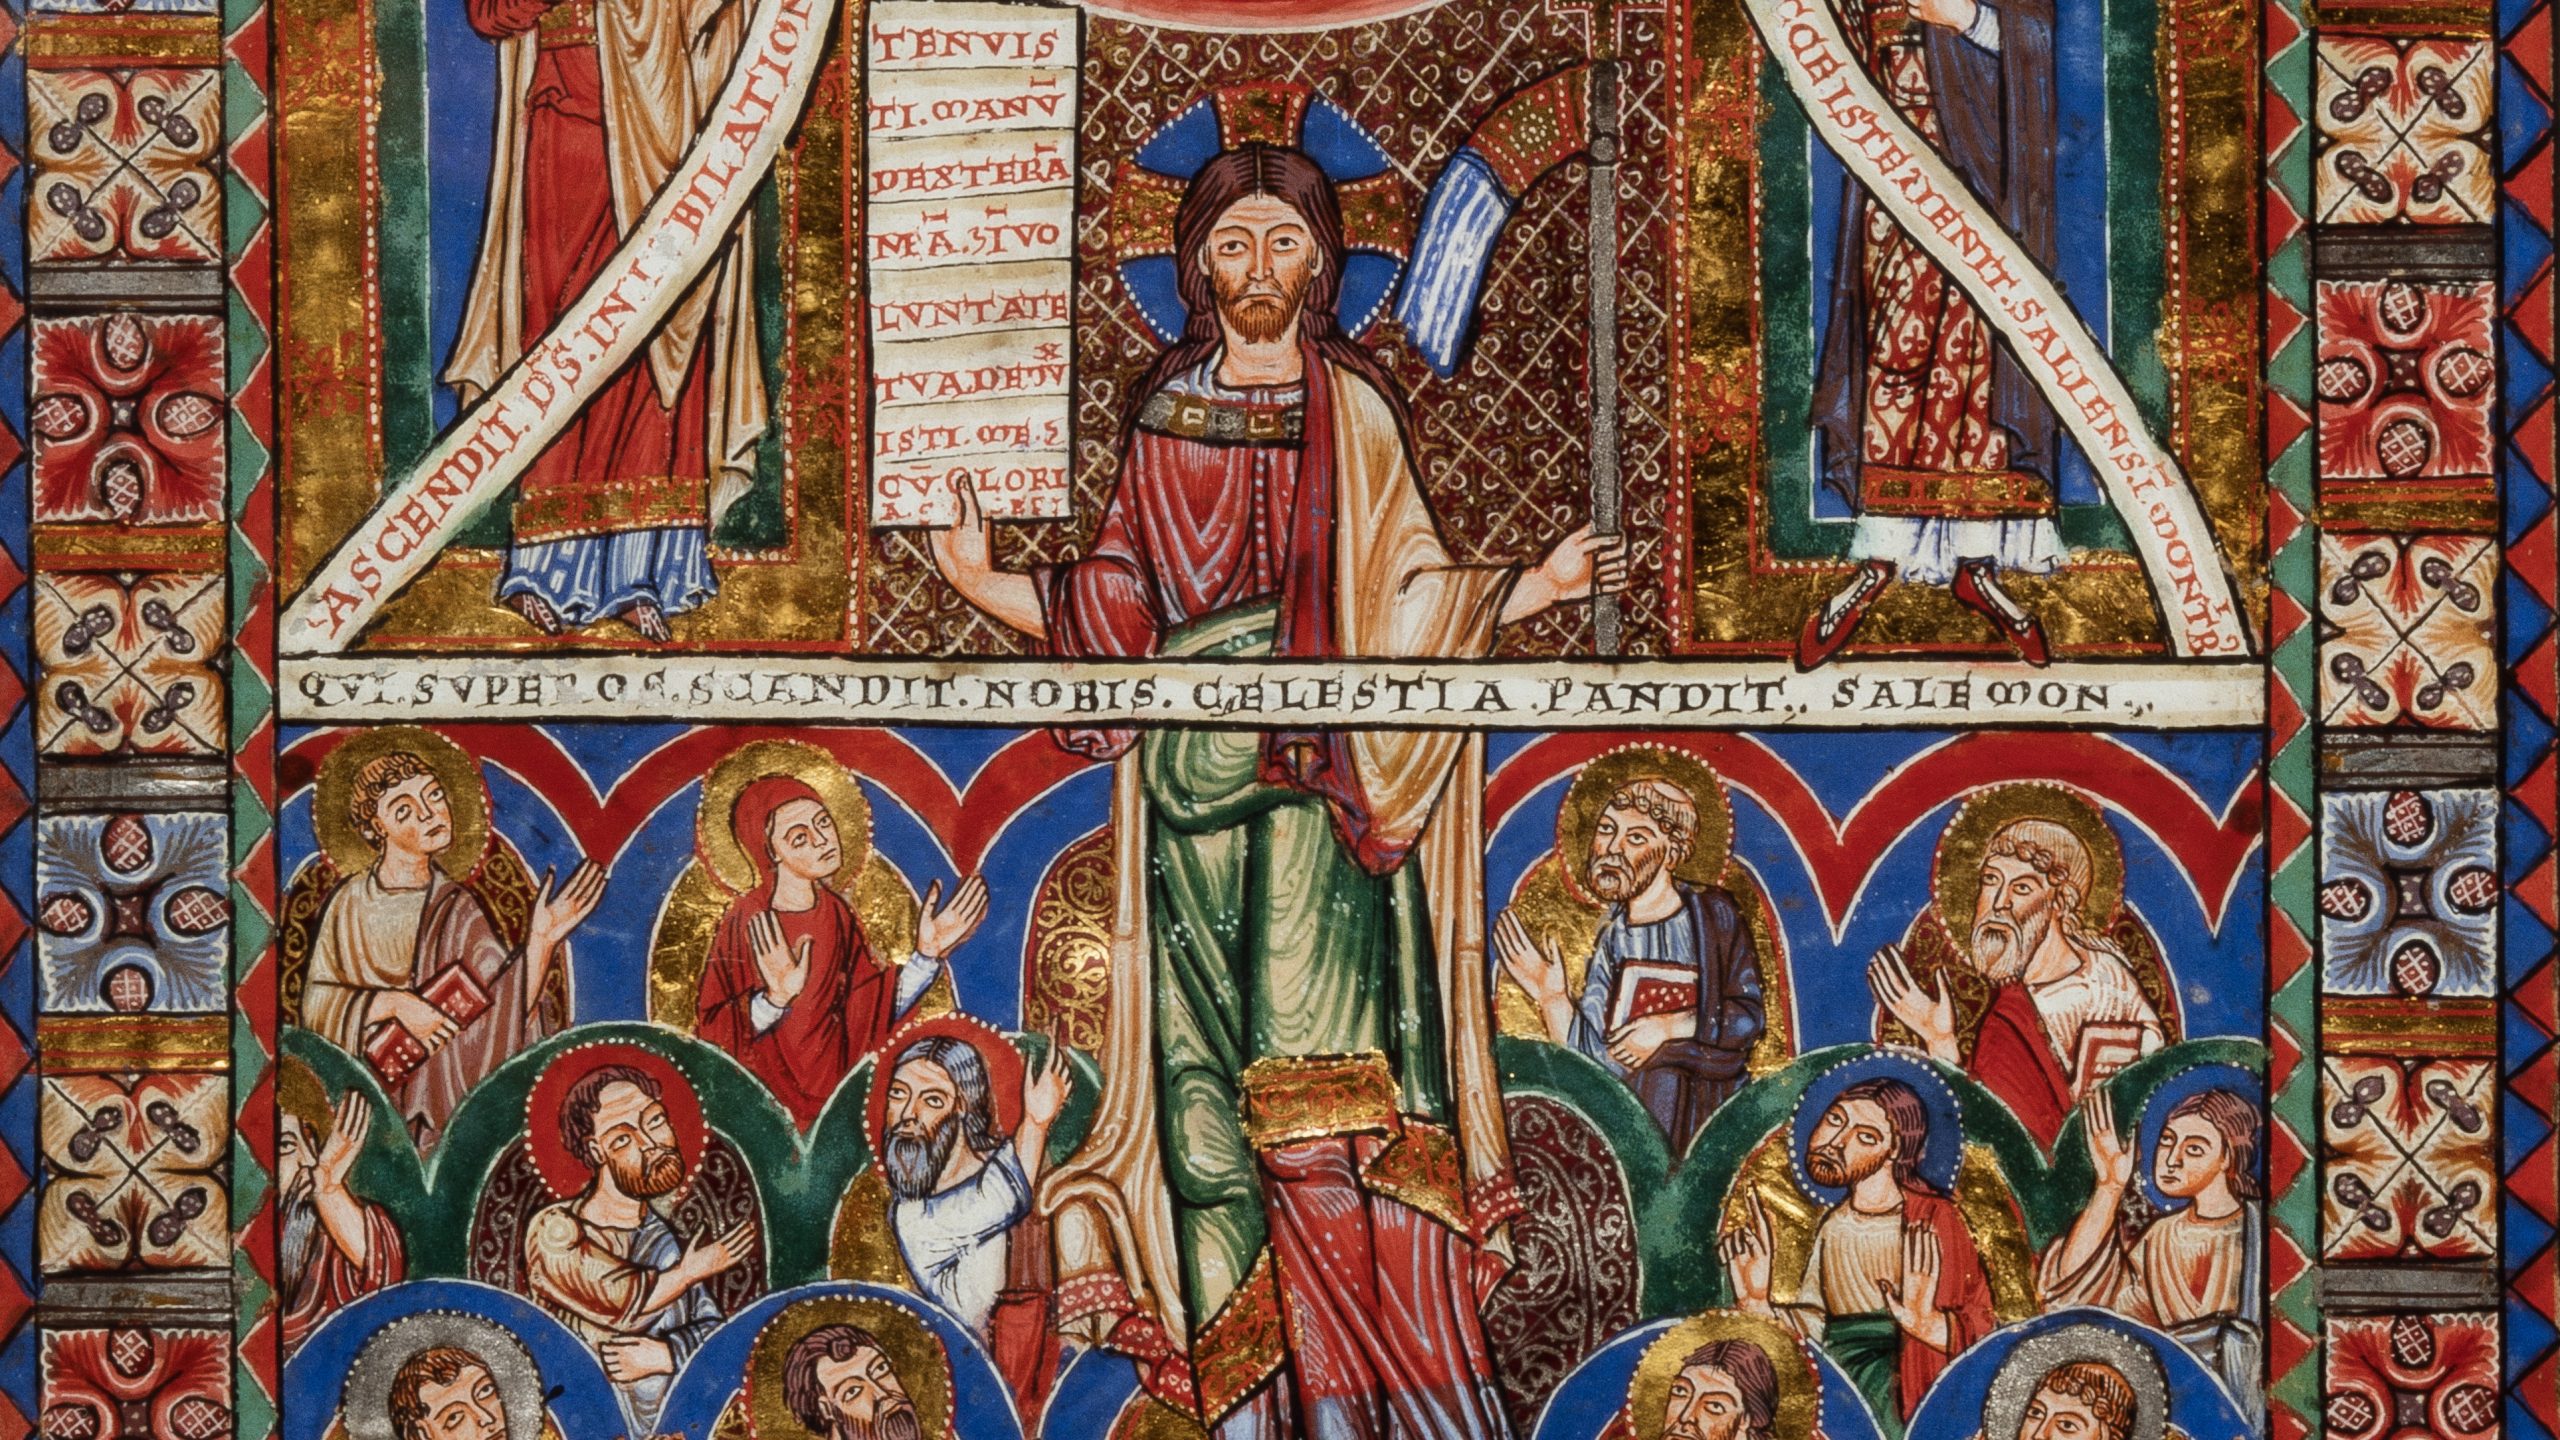 ASCENDIT. D̄S. IN IVBILATION
TENVIS
TI. MANV̄
DEXTERĀ
MEĀ. ⁊ ĪVO
LVNTATE
TVA DEDVX
ISTI. ME. ⁊
CV̄. GLORI
CCE ISTE VENIT. SALIENS Ī MONTIB;
QVI. SVPEROS. SCANDIT. NOBIS. CELESTIA. PANDIT.. SALEMON..